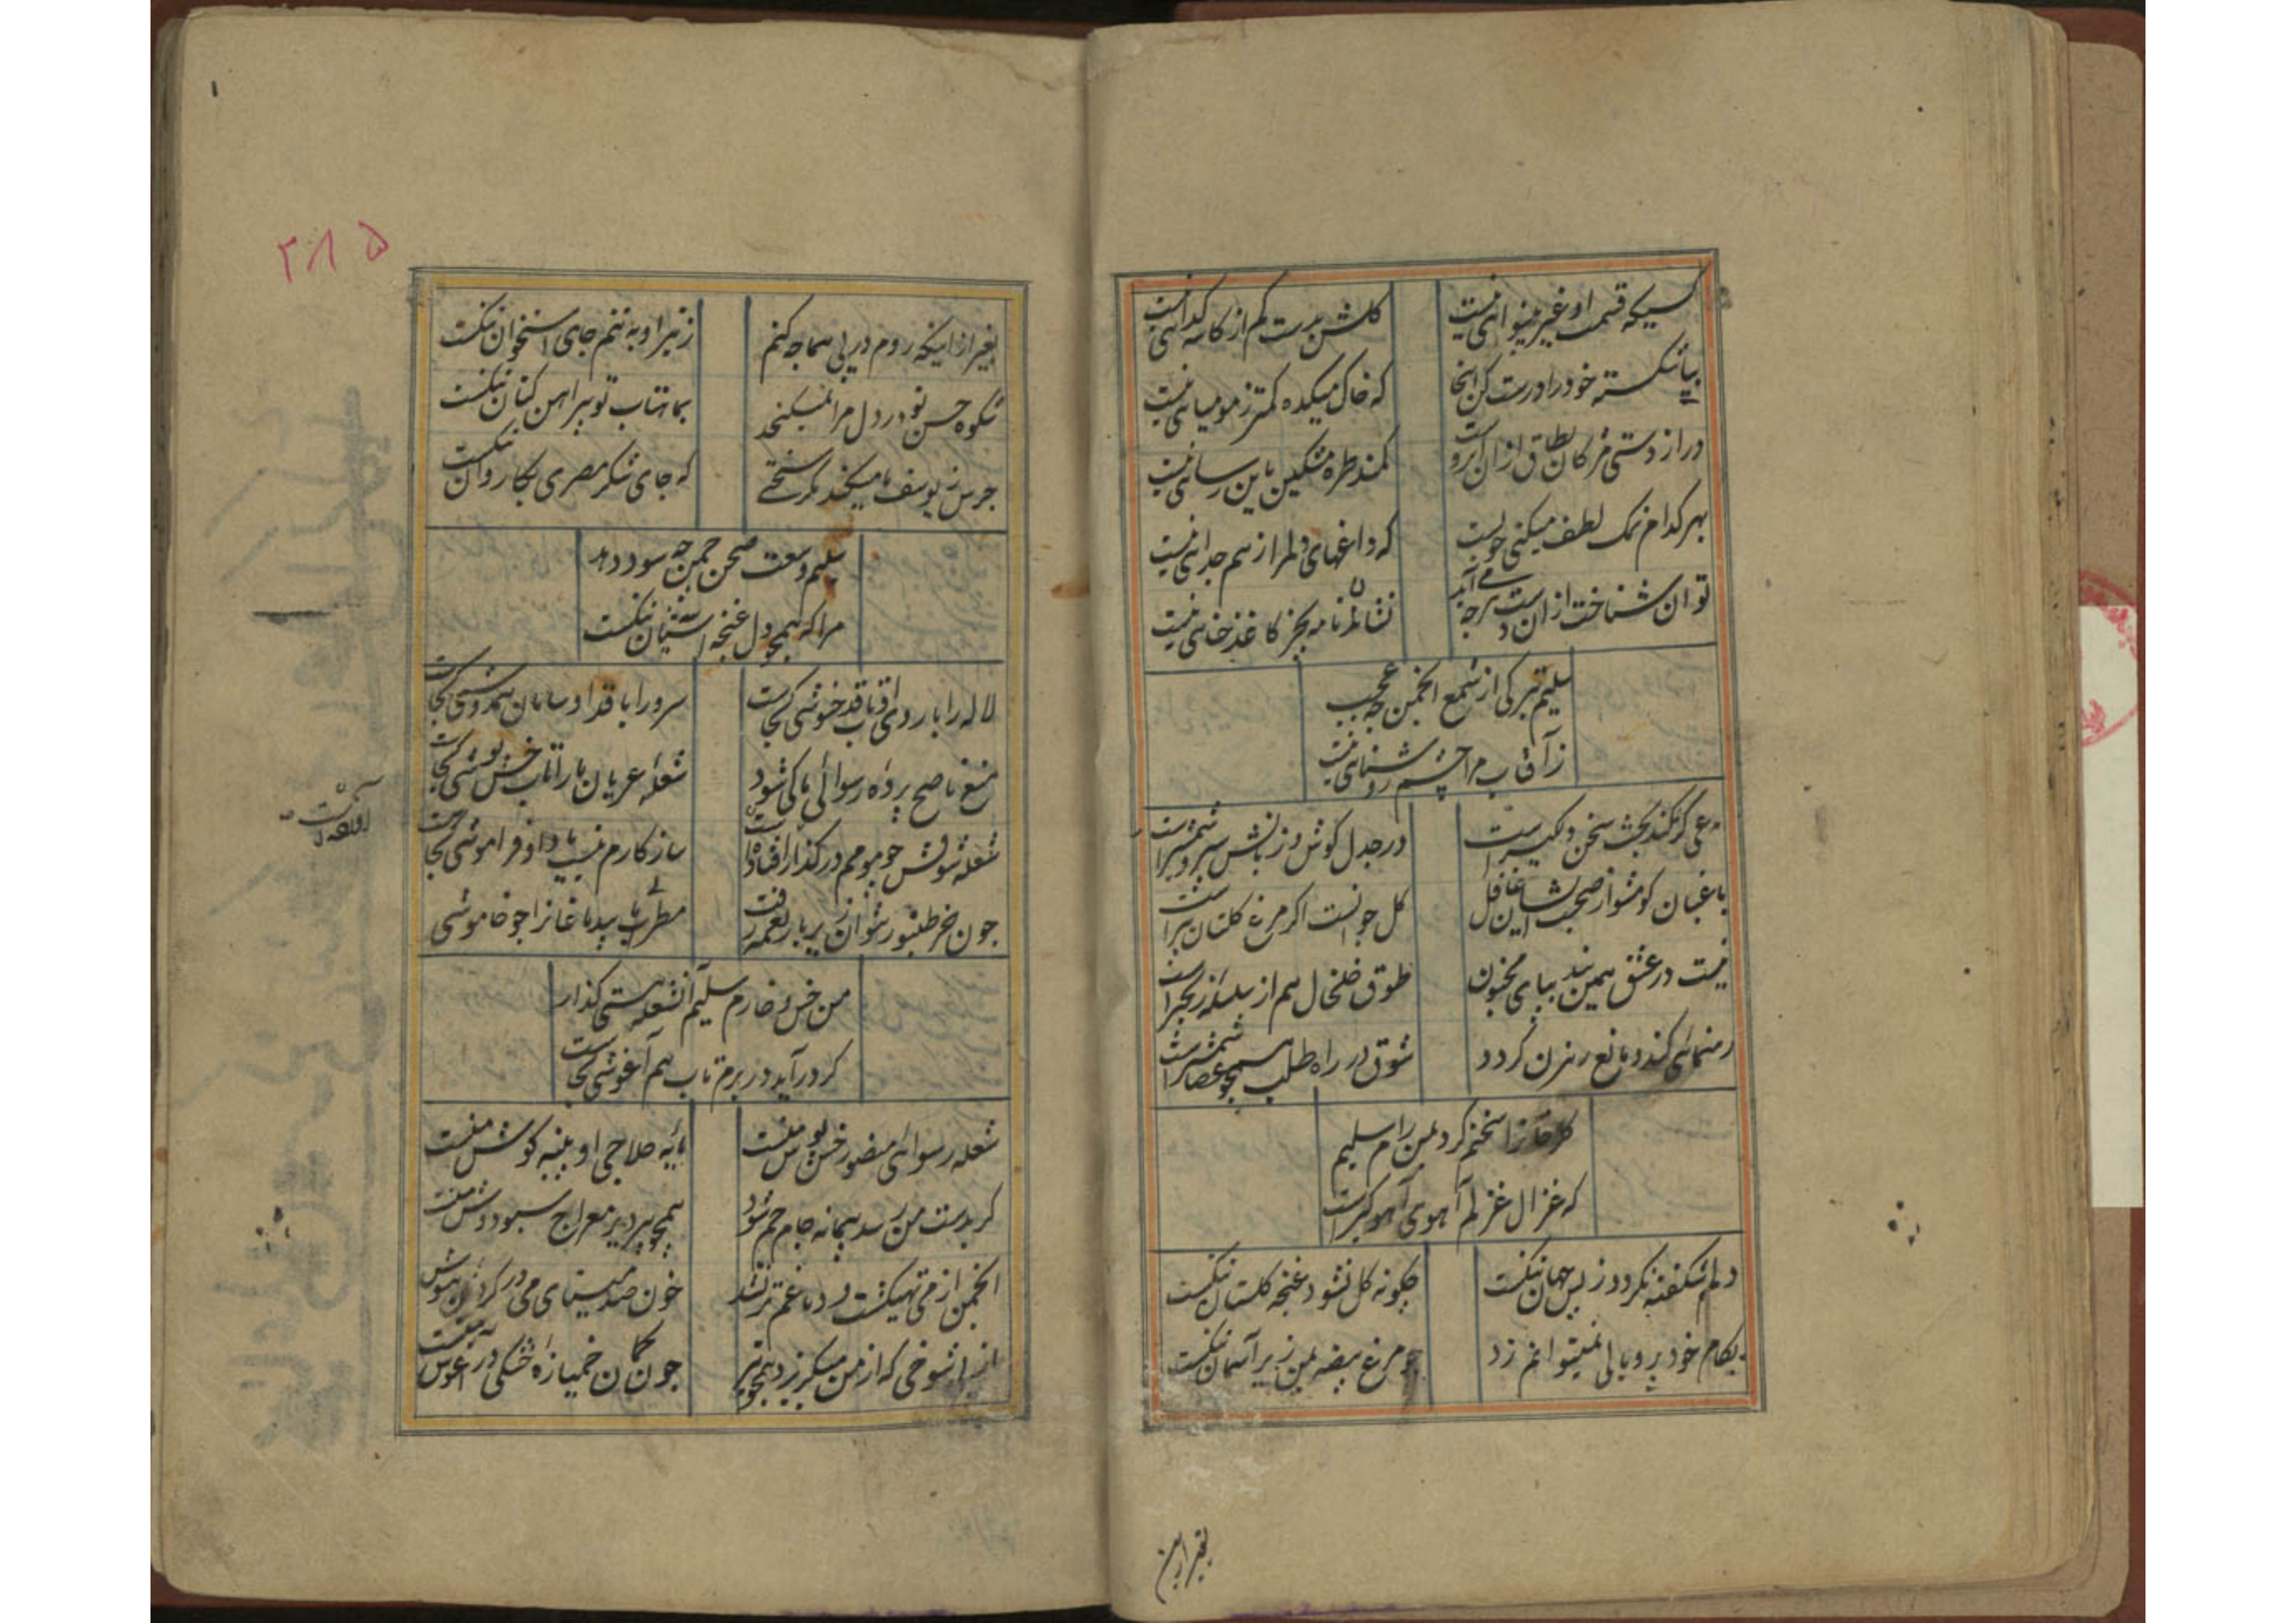 کسیکه قسمت او غیر بینوائی نیست
کلش بدست کم از کاسه کدائی نیست
بیا شکسته خود را درست کن اینجا
که خاک میکده کمتر ز مومیائی نیست
دراز دستی مژکان بطاق از ان ابروست
کمند طره مشکین باین رسائی نیست
بهر کدام نمک لطف میکنی خوبست
که داغهای دلم را ز هم جدائی نیست
توان شناخت از ان دست هرچه می آید
نشان نامه بجز کاغذ خطائی نیست
سلیم تیرکی از شمع انجمن چه عجب
ز آفتاب مرا چشم روشنائی نیست
مدعی کر نکند بحث سخن دلکیر است
در جدل کوش و زبانش سپر و شمشیر است
باغبان کو مشو از صحبت ایشان غافل
کل جوانست اکر مرغ کلستان پیر است
نیست در عشق همین بند بپای مجنون
طوق خلخال هم از سلسله زنجیر است
رهنمائی کند و مانع رهزن کردد
شوق در راه طلب همچو عصا شمشیر است
سخنم کرد بمن رام سلیم
که غزال غزلم آهوی آهوکیر است
دلم شکفته نکردد ز بس جهان تنکست
چکونه کل نشود غنچه کلستان تنکست
بکام خود پر و بالی نمیتوانم زد
چو مرغ بیضه بمن زیر آسمان تنکست
بغیر ازین
۲۸۵
بغیر ازاینکه روم در پی هما چه کنم
ز تیر او به تنم جای استخوان تنکست
شکوه حسن تو در دل مرا نمیکنجد
بماهتاب تو پیراهن کتان تنکست
جرس ز یوسف ما میکند مکر سخنی
که جای شکر مصری بکاروان تنکست
سلیم وسعت صحن چمن چه سود دهد
مرا که همچو دل غنچه آشیان تنکست
لاله را با روی او تاب قدح نوشی کجاست
سرو را با قد او سامان همدوشی کجاست
منع ناصح پرده رسوائی ما کی شود
شعله عریان ما را تاب خس پوشی کجاست
شعله شوقش چو مومم در کداز افتاده است
ساز کارم نیست با داو فراموشی کجاست
چون خر طنبور نتوان زیر بار نغمه رفت
مطرب ما بید ماغانرا چو خاموشی
من خس و خارم سلیم آنشعله هستی کداز
کر درآید در برم تاب هم آغوشی کجاست
شعله رسوائی منصور خس پوش منست
پایه حلاجی او پنبه کوش منست
کر بدست من رسد پیمانه جام جم شود
همچو پیر دیر معراج سبو دوش منست
انجمن از می تهی کشت و دماغم تر نشد
خون صد مینای می در کردن هوش
از شوخی که از من میکریزد همچو تیر
چون کمان خمیازه خشکی در آغوش منست